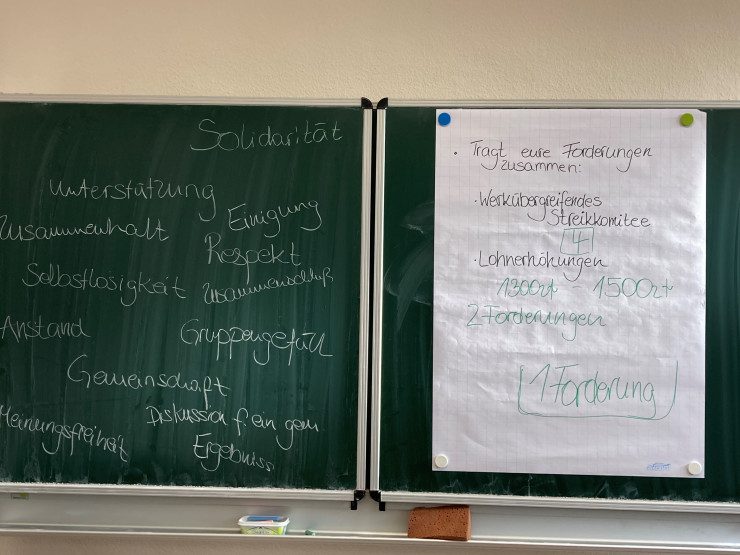 Solidarität
Unterstützung
Einigung
Zusammenhalt
Respekt
Selbstlosigkeit
Zusammenschluß
Anstand
Gruppengefühl
Gemeinschaft
Meinungsfreiheit
Diskussion f. ein gem
Ergebniss
• Tragt eure Forderungen
zusammen:
• Werkübergreifendes
Streikkomitee
4
• Lohnerhöhungen
1300zł - 1500zł
2 Forderungen
1 Forderung